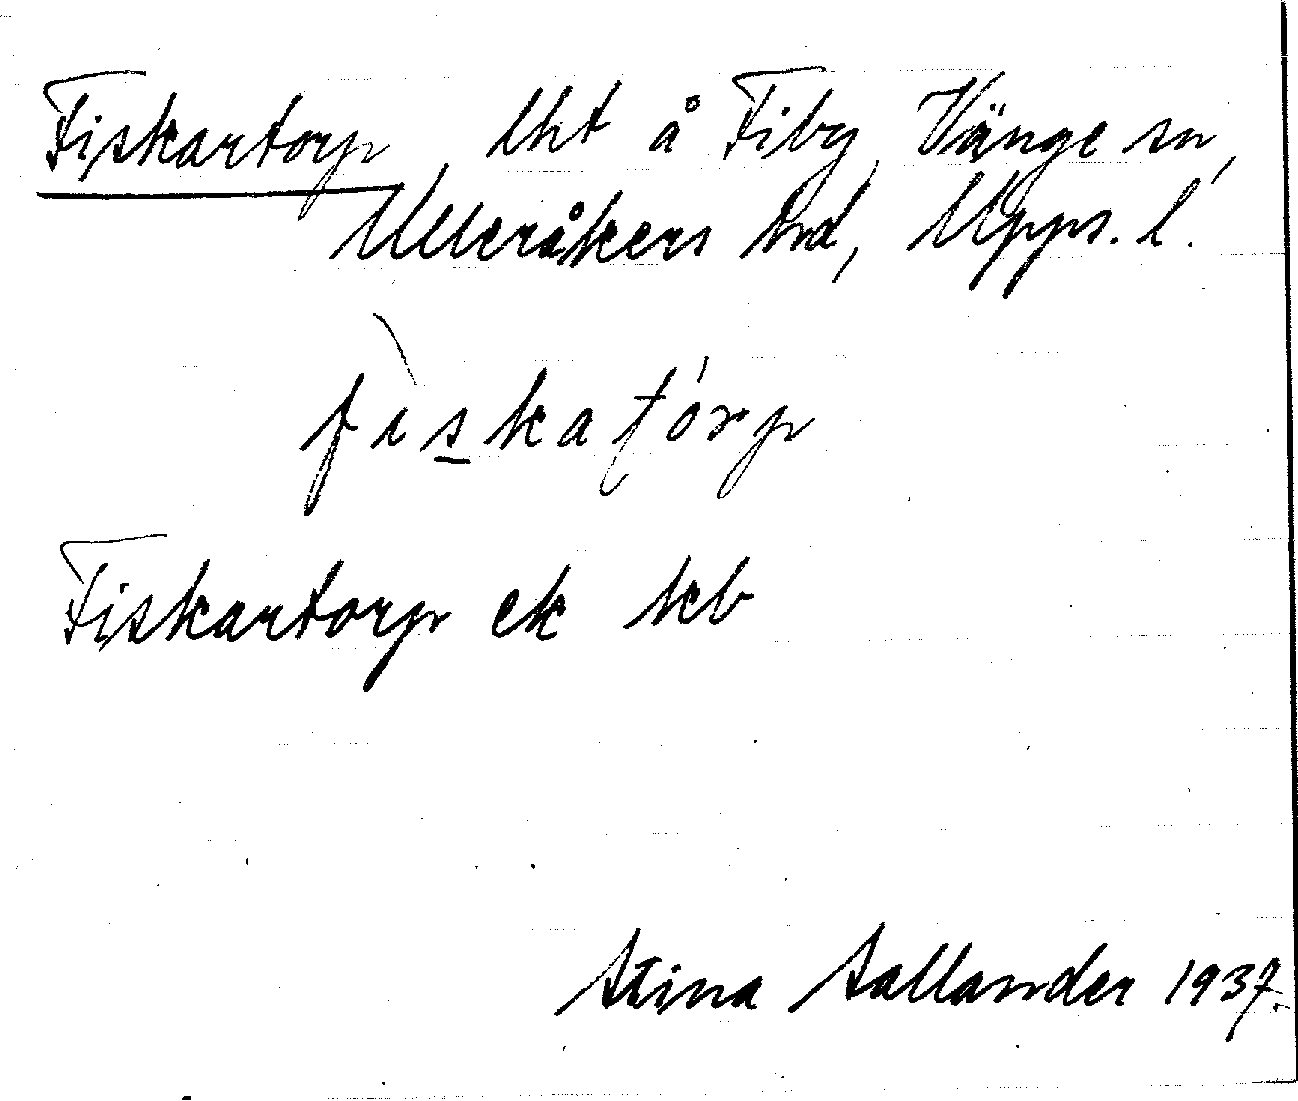 Fiskartorp, lht å Fiby, Vänge sn,
Ulleråkers hrd, Upps. l.
fìskatórp
Fiskartorp ek kb
Stina Sallander 1937.